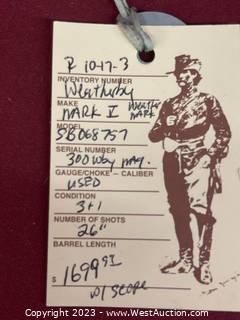 R 10-17-3
INVENTORY NUMBER
Weatherby
MAKE
MARK V WEATHERMARK
MODEL
SB068757
SERIAL NUMBER
300 Wby mag.
GAUGE/CHOKE - CALIBER
USED
CONDITION
3+1
NUMBER OF SHOTS
26"
BARREL LENGTH
$ 1699 95
w/ scope
Copyright © 2023 - www.WestAuction.com